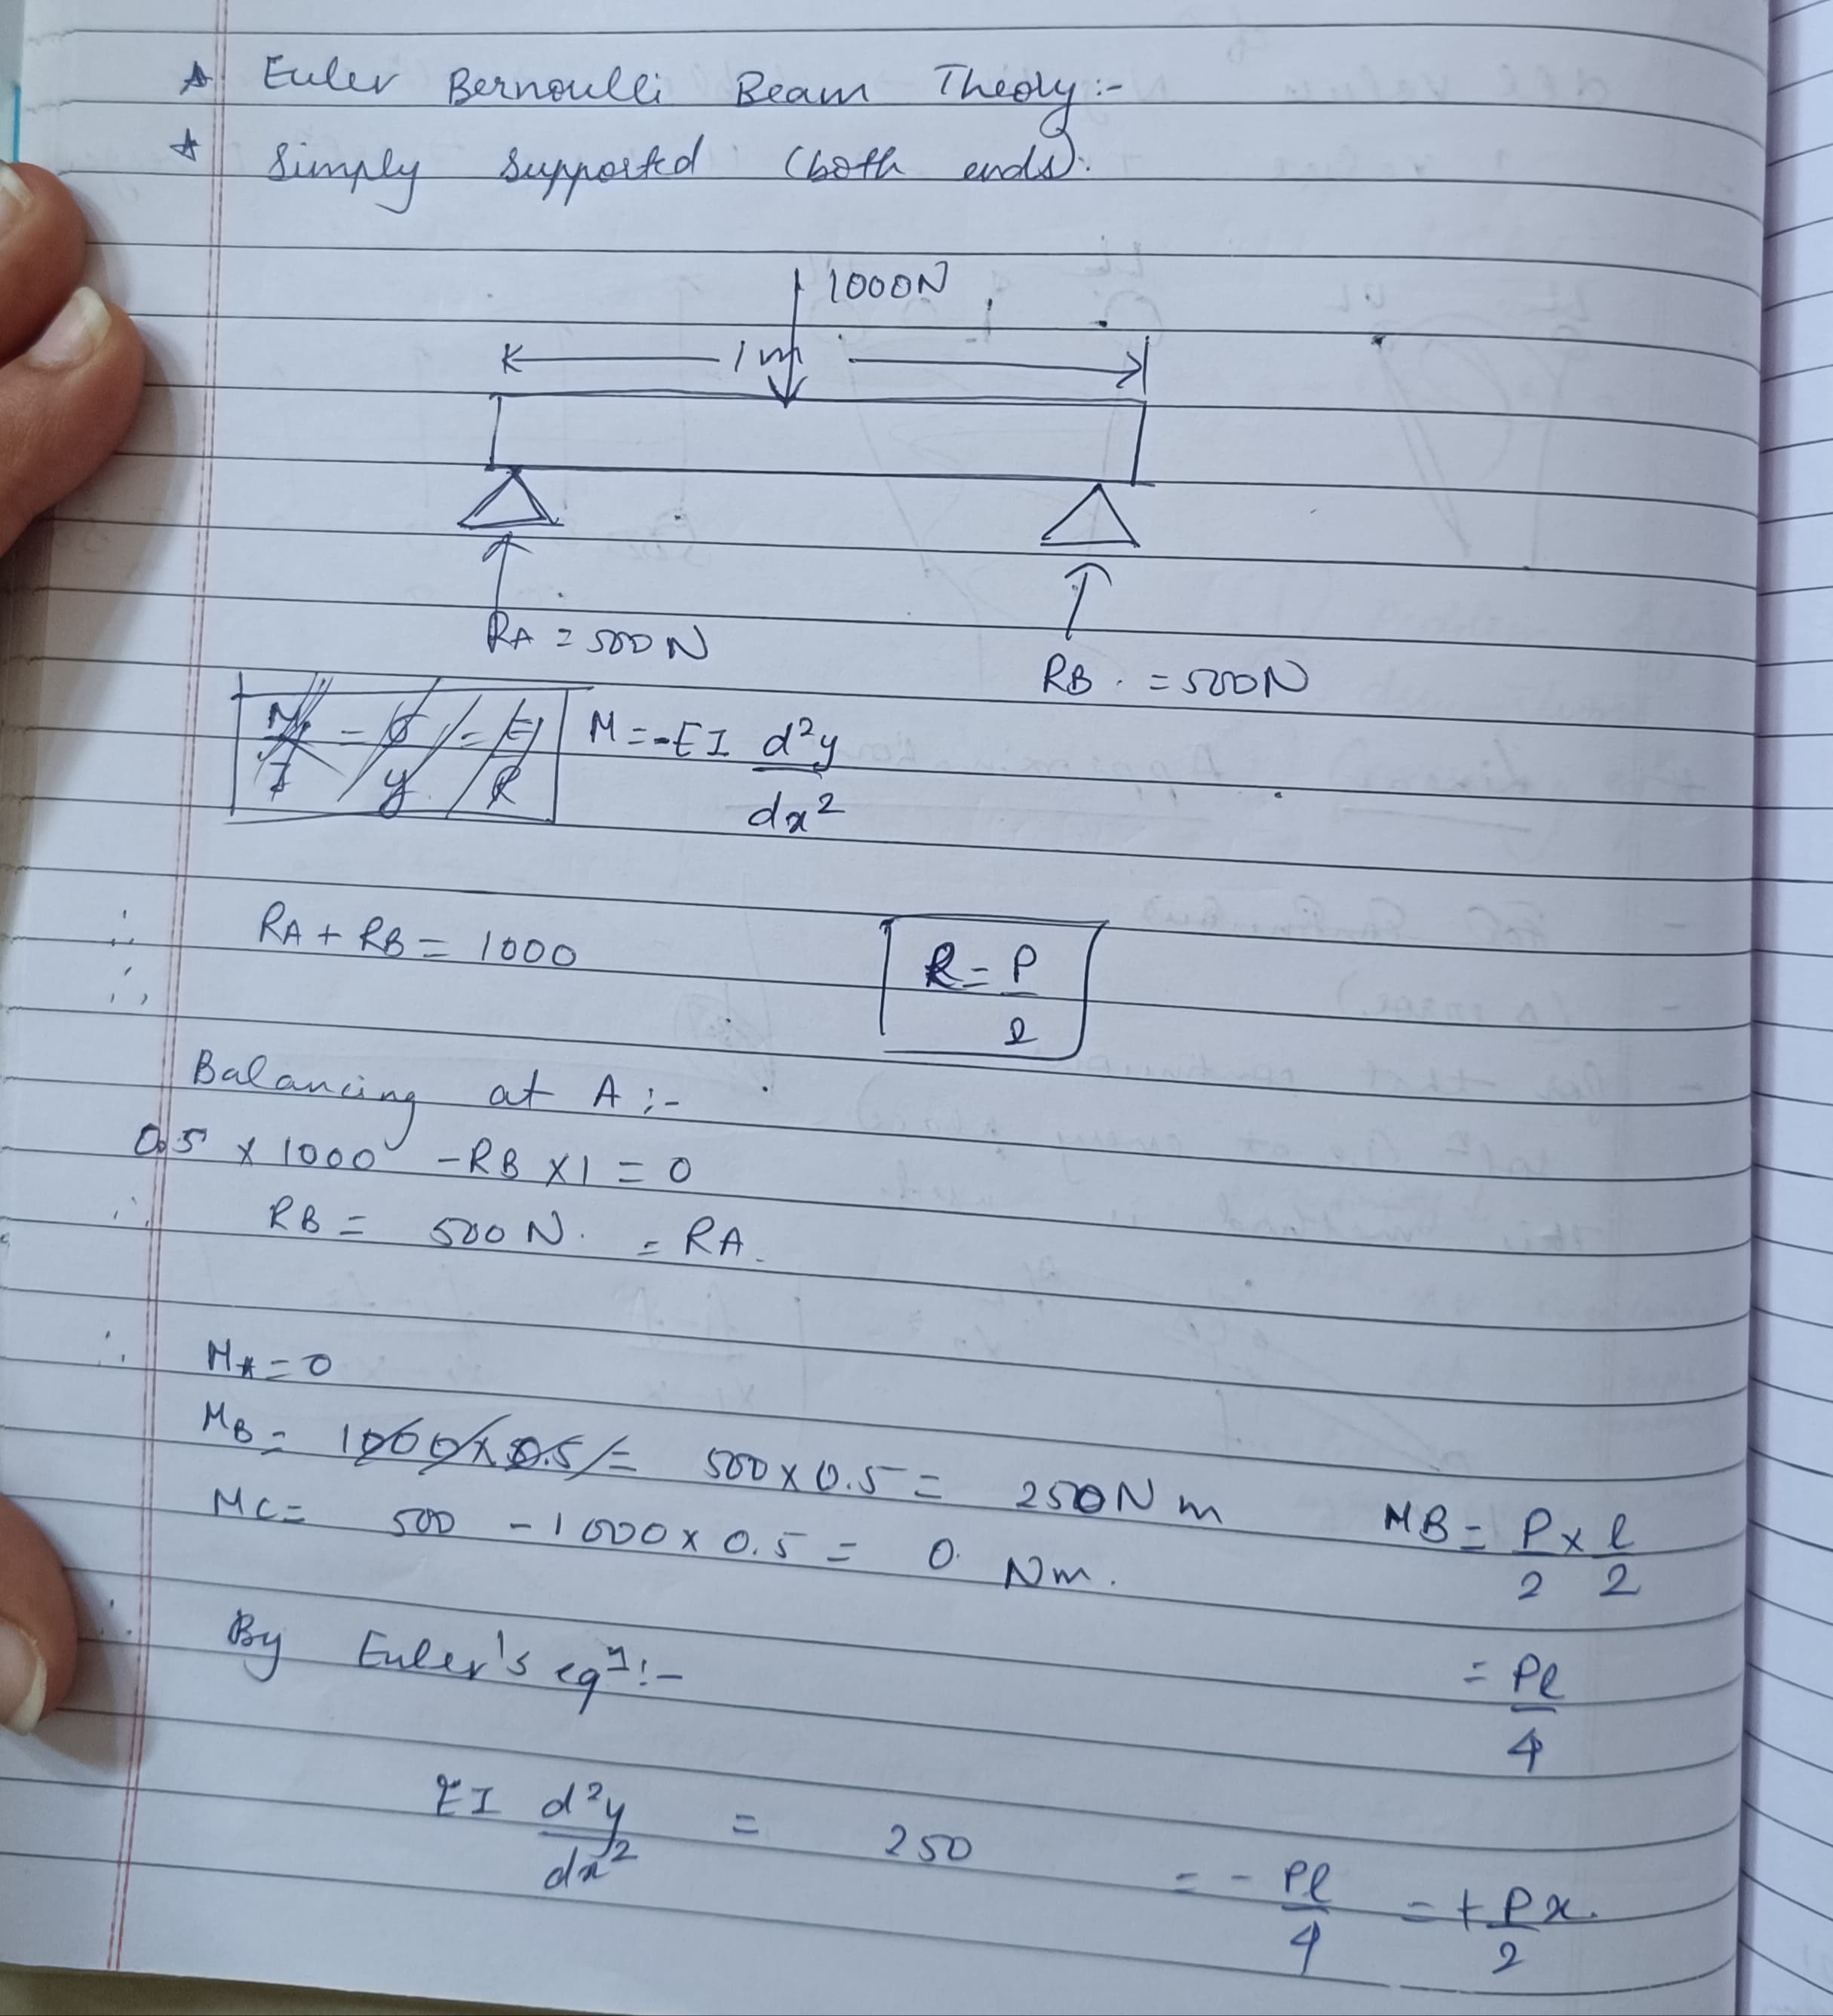 ☆ Euler Bernoulli Beam Theory:-
☆ Simply supported (both ends):
1000N
1m
RA = 500N
RB = 500N
M/I = σ/y = E/R M = -EI d²y/dx²
∴ RA + RB = 1000 R = P/2
Balancing at A :-
0.5 x 1000 - RB x 1 = 0
∴ RB = 500 N. = RA.
∴ MA = 0
MB = 1000 x 0.5 = 500 x 0.5 = 250 N m MB = P/2 x l/2
MC = 500 - 1000 x 0.5 = 0 Nm. = Pl/4
∴ By Euler's eqⁿ:-
EI d²y/dx² = 250 = - Pl/4 = + P/2 x.